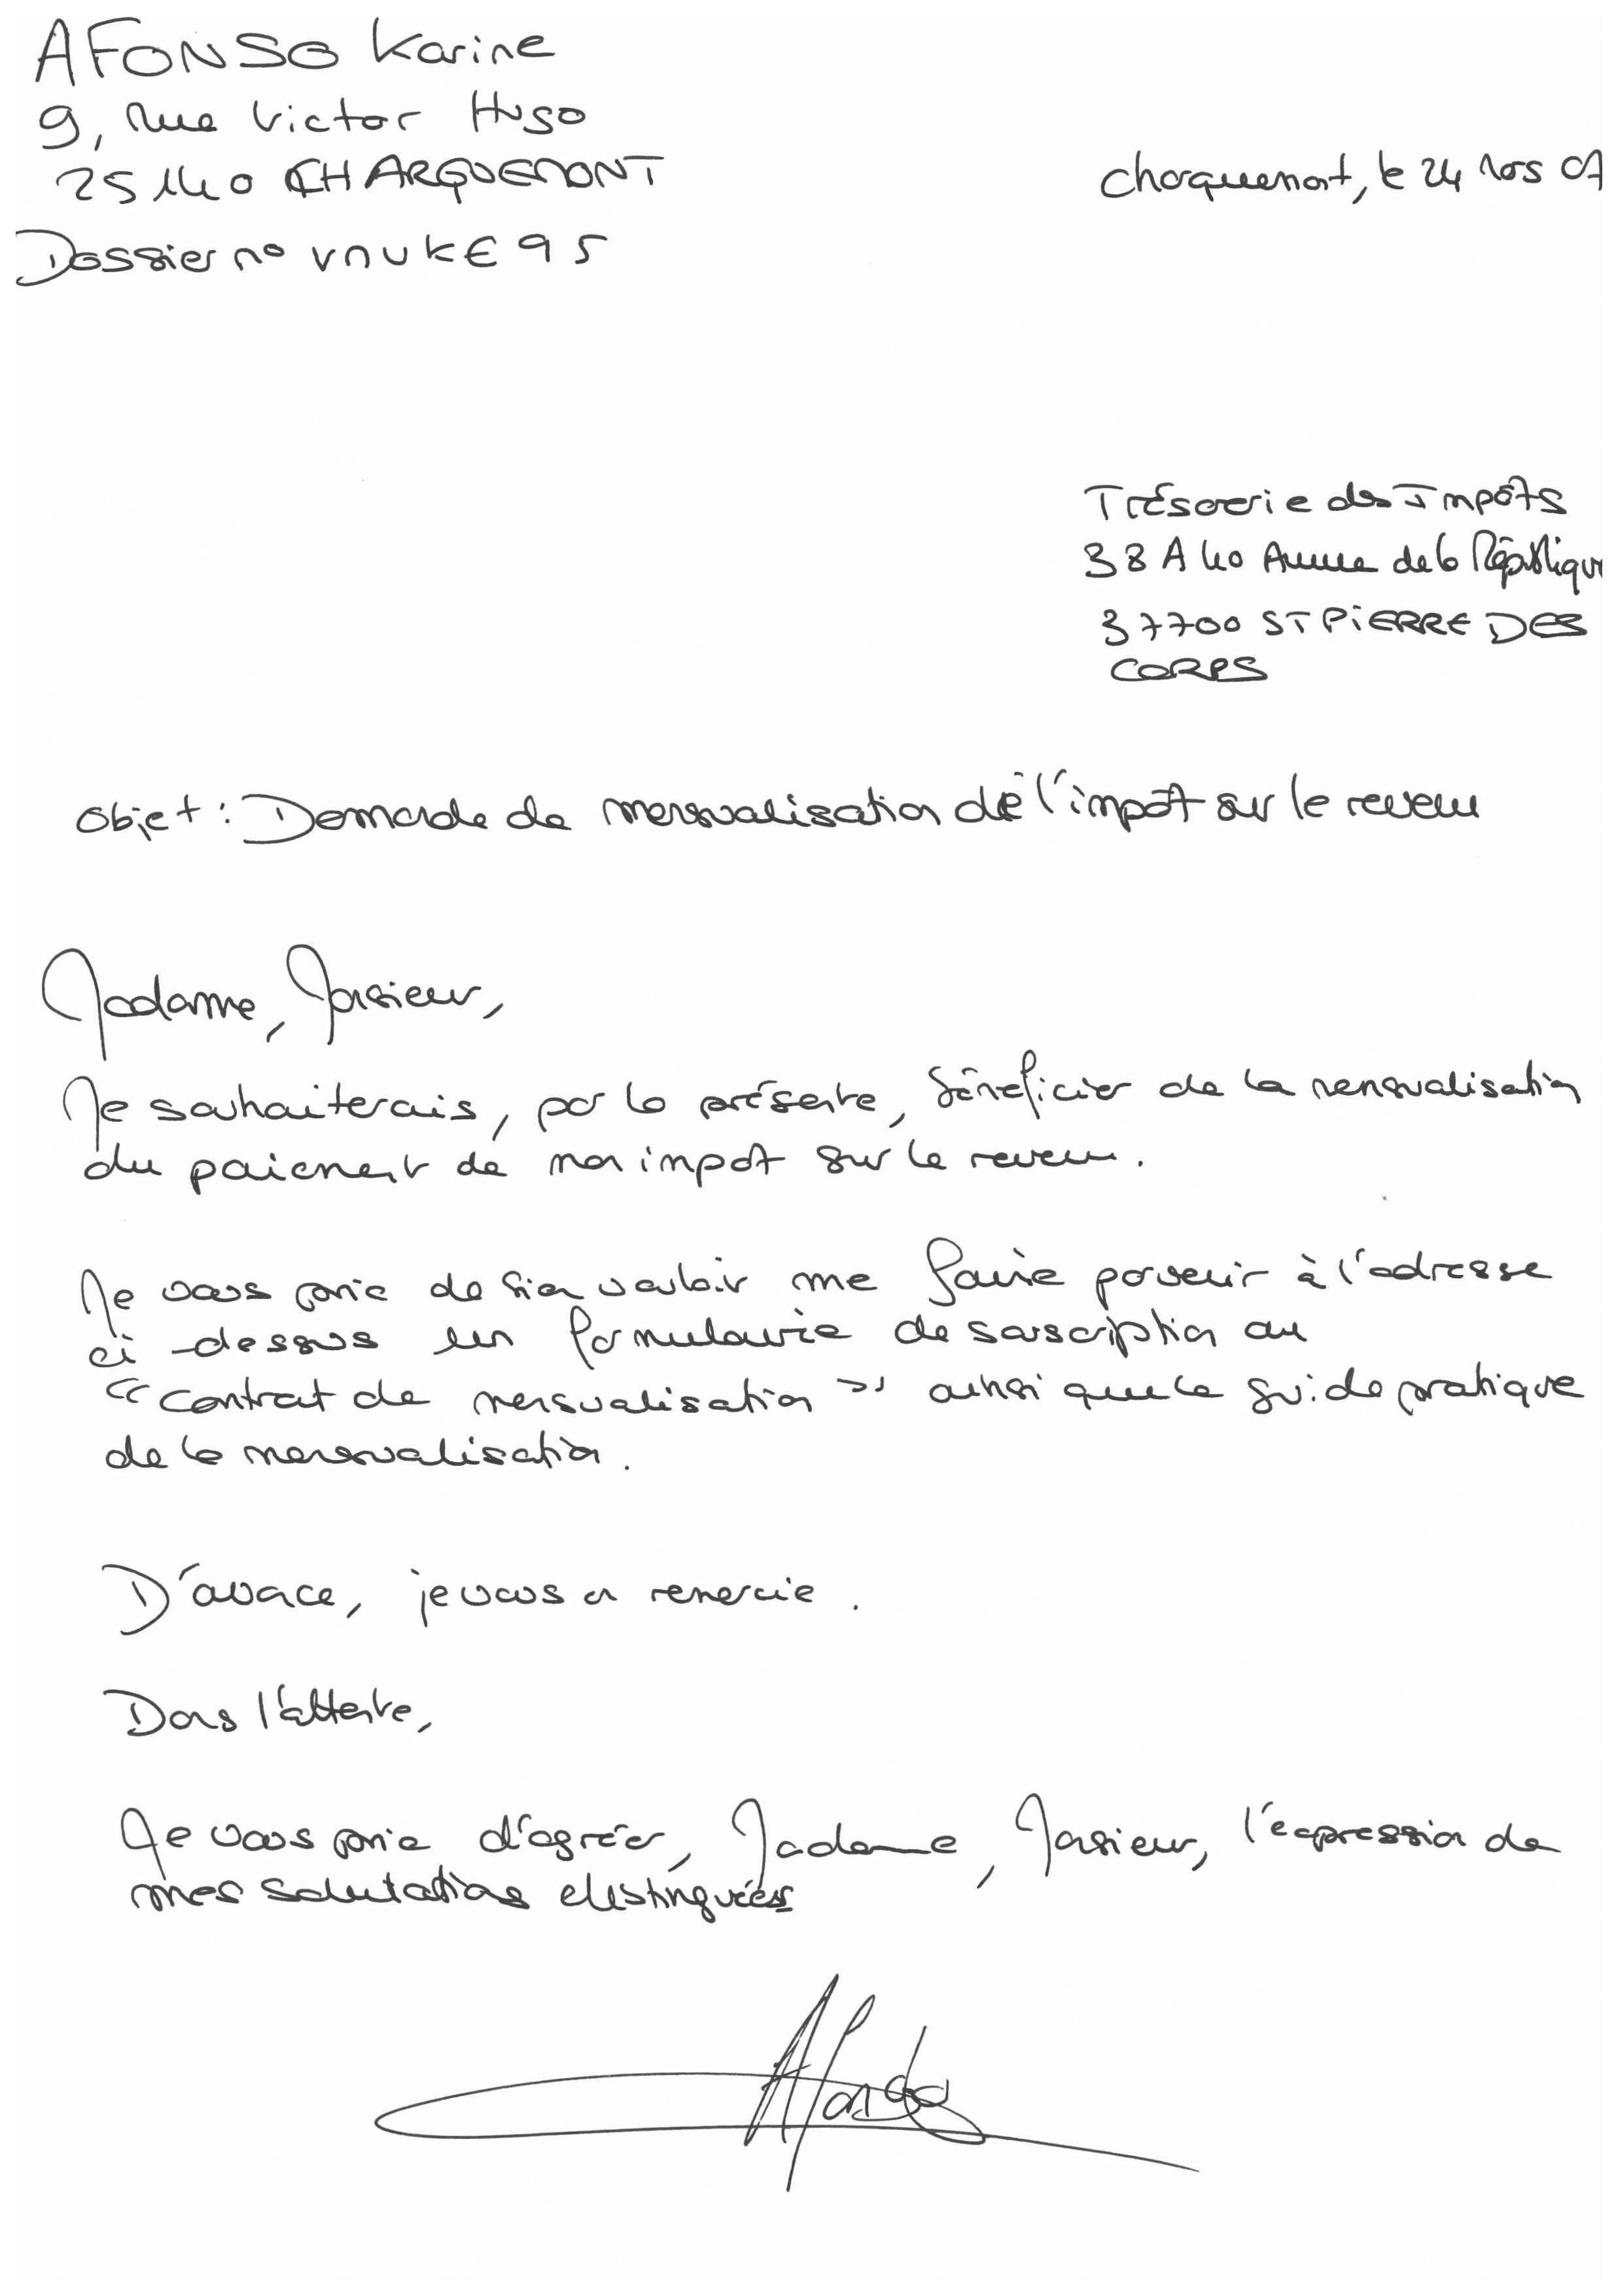 AFONSO Karine
9, rue Victor Hugo
25140 CHARQUEMONT
Charquemont, le 24 mars 07
Dossier n° VNUKE95
Trésorerie des Impôts
38 A 40 Avenue de la République
37700 ST PIERRE DES
CORPS
Objet : Demande de mensualisation de l'impôt sur le revenu
Madame, Monsieur,
Je souhaiterais, par la présente, bénéficier de la mensualisation
du paiement de mon impôt sur le revenu.
Je vous prie de bien vouloir me faire parvenir à l'adresse
ci-dessus un formulaire de souscription au
"contrat de mensualisation" ainsi que le guide pratique
de la mensualisation.
D'avance, je vous en remercie.
Dans l'attente,
Je vous prie d'agréer, Madame, Monsieur, l'expression de
mes salutations distinguées